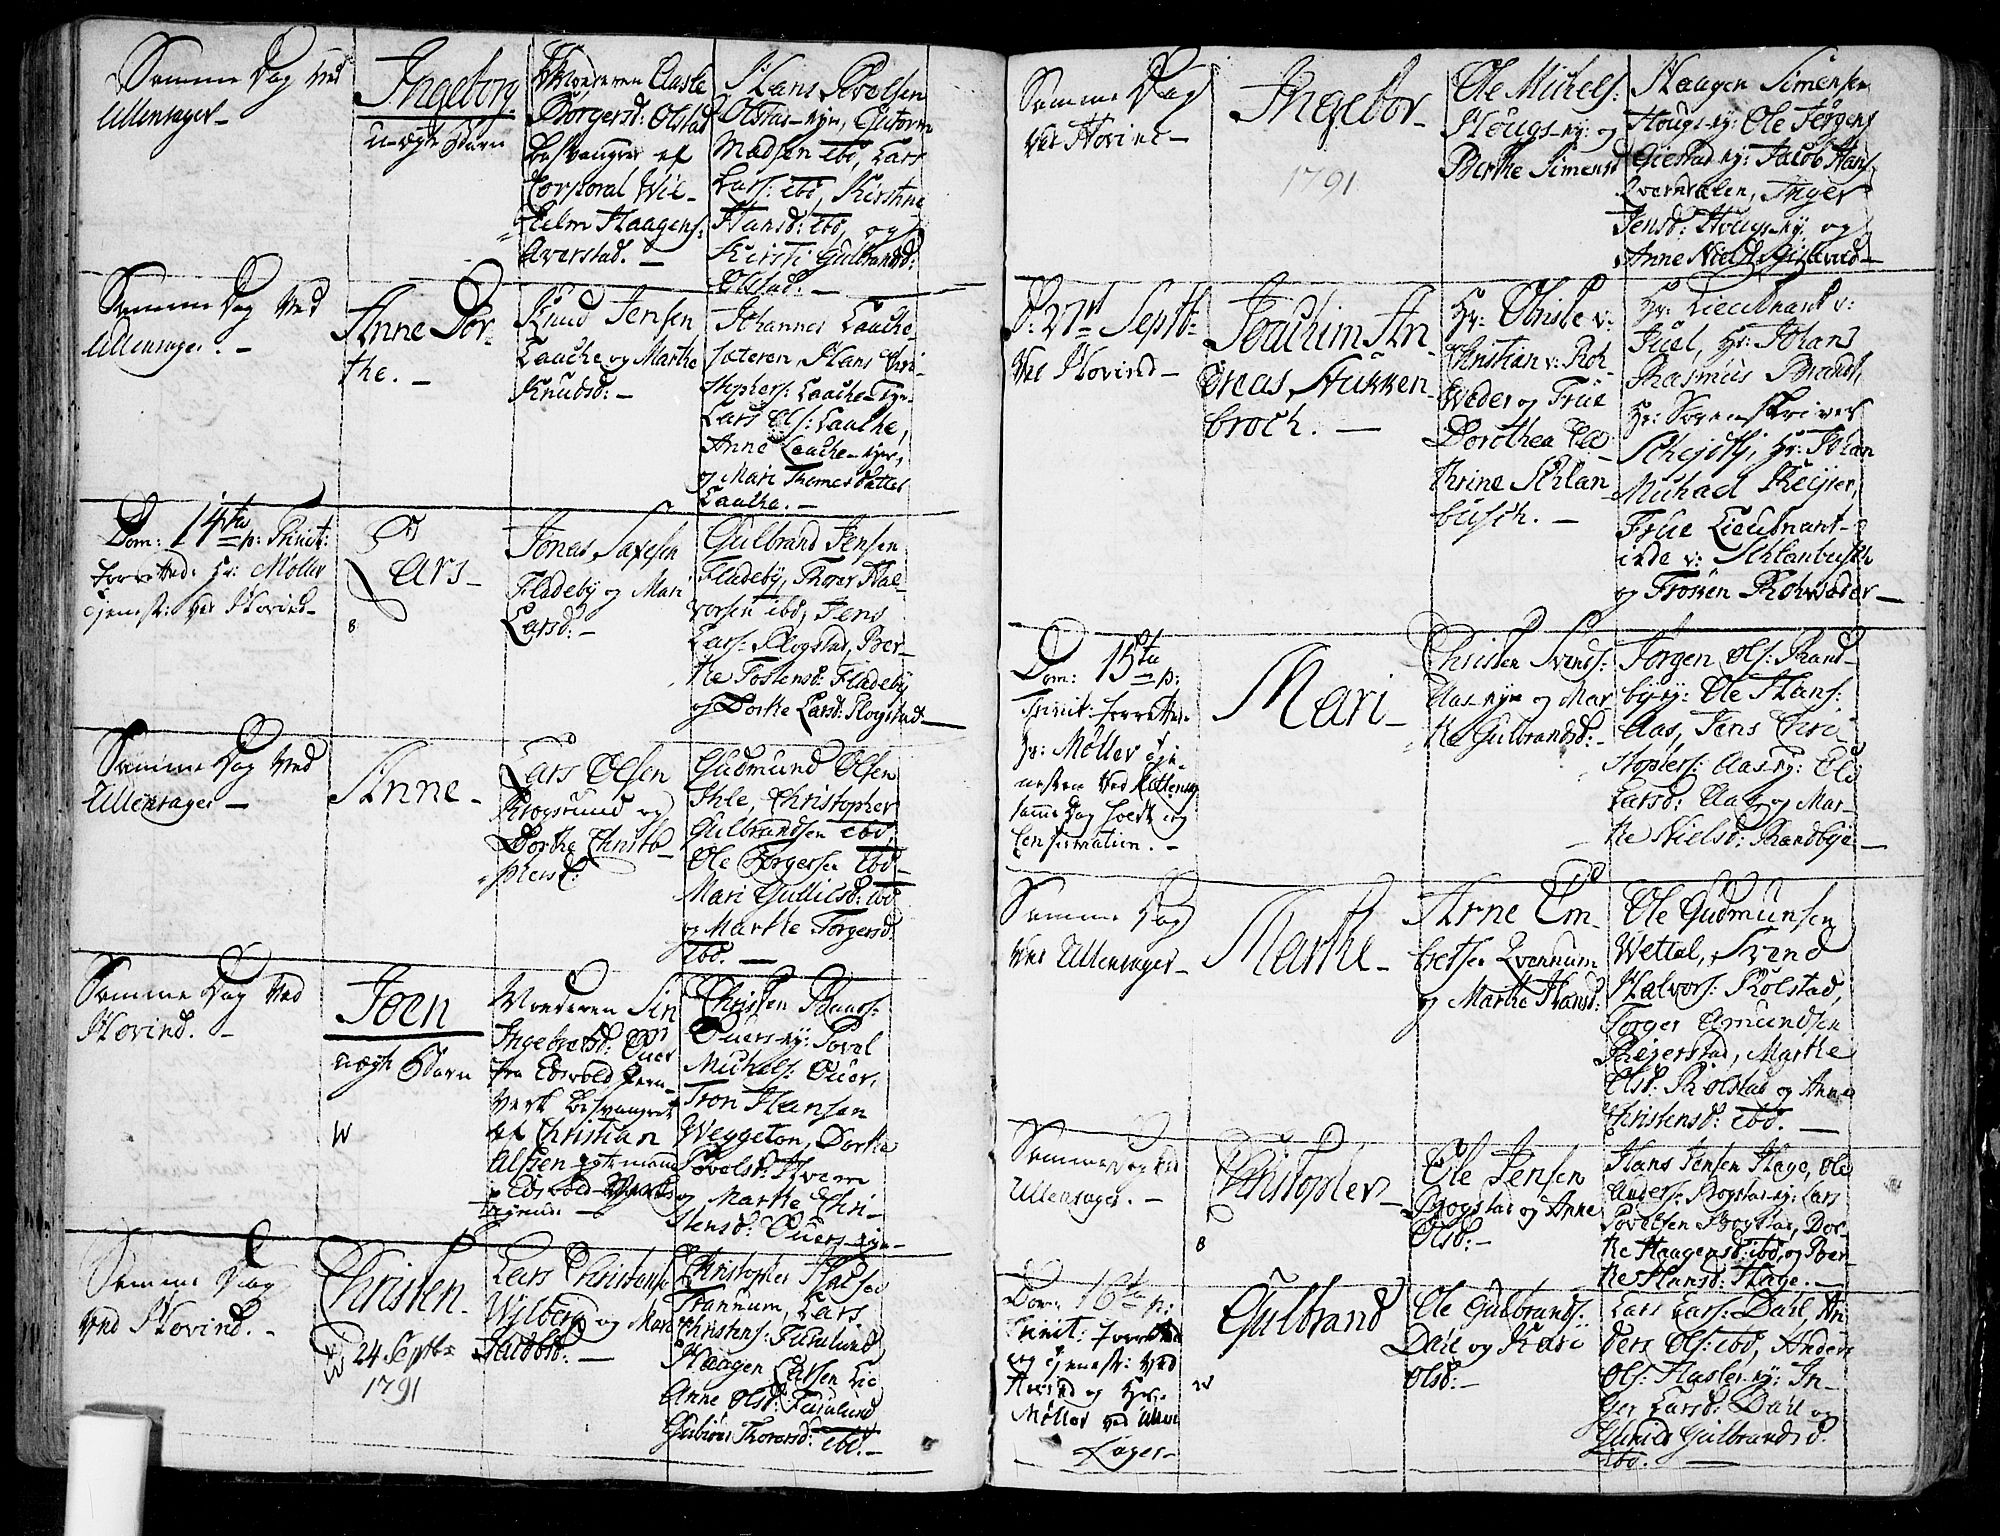 Samme Dag ved
Ullensager –
Ingeborg
u-ægte Barn
Moderen Aaste
Borgersd: Olstad
besvangret af
Corporal Wil-
helm Haagens:
Averstad. –
Hans Povelsen
Olstad-eye, Gutorm
Madsen ibd, Lars
Lars: ibd, Kirstine
Hansd: ibd, og
Kirsti Gulbrandsd:
Olstad. –
Samme Dag ved
Ullensager. –
Anne Dor-
the. –
Knud Jensen
Laache og Marthe
Knudsd: –
Johannes Laache-
sæteren, Hans Chri-
stophers: Laache-eye,
Lars Ols: Laache,
Anne Laache-eye,
og Mari Thomesdatter
Laache. –
Dom: 14da p: Trinit:
forretted: Hr: Møller
tjenest: ved Hovind –
Lars –
8
Jonas Saxesen
Fladeby og Mari
Larsd: –
Gulbrand Jensen
Fladeby, Thoer Hal-
vorsen ibd, Jens
Lars: Rogstad, Ber-
the Tostensd: Fladeby
og Dorthe Larsd: Rogstad –
Samme Dag ved
Ullensager –
Anne –
Lars Olsen
Krogsrund og
Dorthe Christo-
phersd:
Gudmund Olsen
Ihle, Christopher
Gulbrandsen ibd,
Ole Torgersen ibd
Mari Gullicsd: ibd
og Marthe Torgersd:
ibd. –
Samme Dag ved
Hovind. –
Joen
uægte Barn
W
Moderen Siri
Ingebretsd: Ouer
fra Edsvold Jern-
verk besvangret
af Christian
Olsen
Edsvold
Christen
Ouers-ey: Povel
Michels: Ouer,
Tron Hansen
Weggeton, Dorthe
Povelsd: Hvem
og Marthe Chri-
stensd: Ouers-eye –
Samme Dag
ved Hovind. –
Christen –
W 24 Septbr
1791
Lars Christens:
Wilberg og Mari
Jacobsd: –
Christopher
Trannum, Lars
Christens: Furulund
Haagen Larsen Lie
Anne Olsd: Furulund
Gubiør Thoresd: ibd. –
Samme Dag
ved Hovind –
Ingebor –
1791
Ole Michels:
Hougs-ey: og
Berthe Simensd
Haagen Simensen
Hougs-ey: Ole Jørgens
Gjestad-ey: Jacob Hans
Qverndalen, Inger
Jensd: Hougs-ey og
Anne Nielsd: –
D: 21de Septb:
ved Hovind –
Joachim An-
dreas Stükken-
broch. –
Hr: Obriste v:
Christian v: Roh-
weder og Frue
Dorothea Ca-
thrine Schlan-
busch. –
Hr: Lieutnant v:
Juel, Hr: Johans
Rasmus Brandt,
Hr: Sorenskriver
Schejdtz, Hr: Johan
Michael Rejier,
Frue Lieutnant-
inde v: Schlanbusch
og Frøken Rohweder –
Dom: 15ta p:
Trinit: forretted:
Hr: Møller Tje-
nesten ved Ullensag
samme Dag holdt jeg
Confirmation. –
Mari –
Christen Svends:
Aas-eye og Mar-
the Gulbrandsd: –
Jørgen Ols: Rand-
byey: Ole Hans:
Aas, Jens Chri-
stophers: Aas-ey: Eli
Larsd: Aas og Mar-
the Nielsd: Randbye –
Samme Dag
ved Ullensager –
Marthe –
Arne Em-
bretsen Qvennum
og Marthe Hansd:
Ole Gudmunsen
Wettal, Svend
Halvors: Rolstad,
Torger Amundsen
Rejerstad, Marthe
Olsd: Rolstad og Anne
Christensd: ibd. –
Samme Dag ved
Ullensager. –
Christopher –
8
Ole Jensen
Bogstad og Anne
Olsd: –
Hans Jensen Hage, Ole
Anders: Bogstad-ey: Lars
Povelsen Bogstad, Dor-
the Haagensd: ibd, og Ber-
the Hansd: Hage. –
Dom: 16ta p:
Trinit: forretted
og tjenest: ved
Hovind og Hr:
Møller ved Ullen-
sager –
Gulbrand
W
Ole Gulbrands:
Dahl og Kari
Olsd: –
Lars Lars: Dahl, An-
ders Ols: ibd, Anders
Ols: Hasler-ey: In-
ger Larsd: Dahl og
Gulbrandsd.
ibd. –